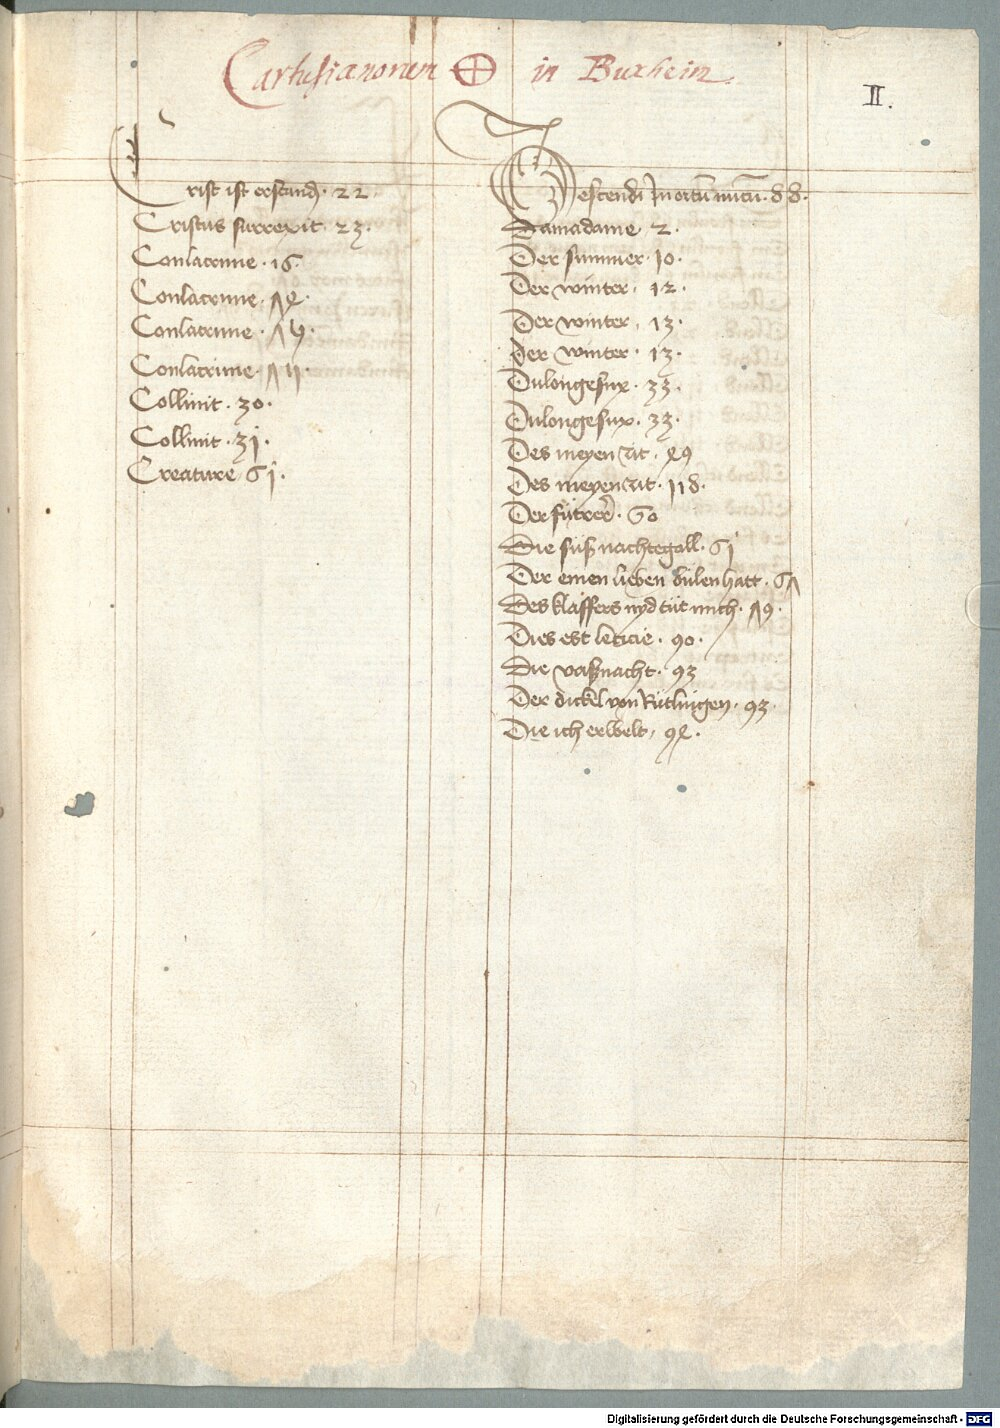 Cartusianorum in Buxheim.
II.
Crist ist erstand. 22.
Cristus surrexit. 23.
Conlacrime. 16.
Conlacrime.
Conlacrime.
Conlacrime.
Collinit. 30.
Collinit. 31.
Creature 61.
Descendi
Damadame 2.
Der summer 10.
Der winter. 12.
Der winter. 13.
Der winter. 13.
Dulongesux. 33.
Dulongesux. 33.
Des meyen zit. 49
Des meyen zit. 118.
Der fütrer. 60
Die süß nachtegall. 61
Der einen lieben bülen hatt. 67
Des klaffers nyd tüt mich. 79.
Dies est leticie. 90.
Die vasnacht. 93
Der dickel von Rütlingen. 93.
Die ich erwelt. 94.
Digitalisierung gefördert durch die Deutsche Forschungsgemeinschaft - DFG